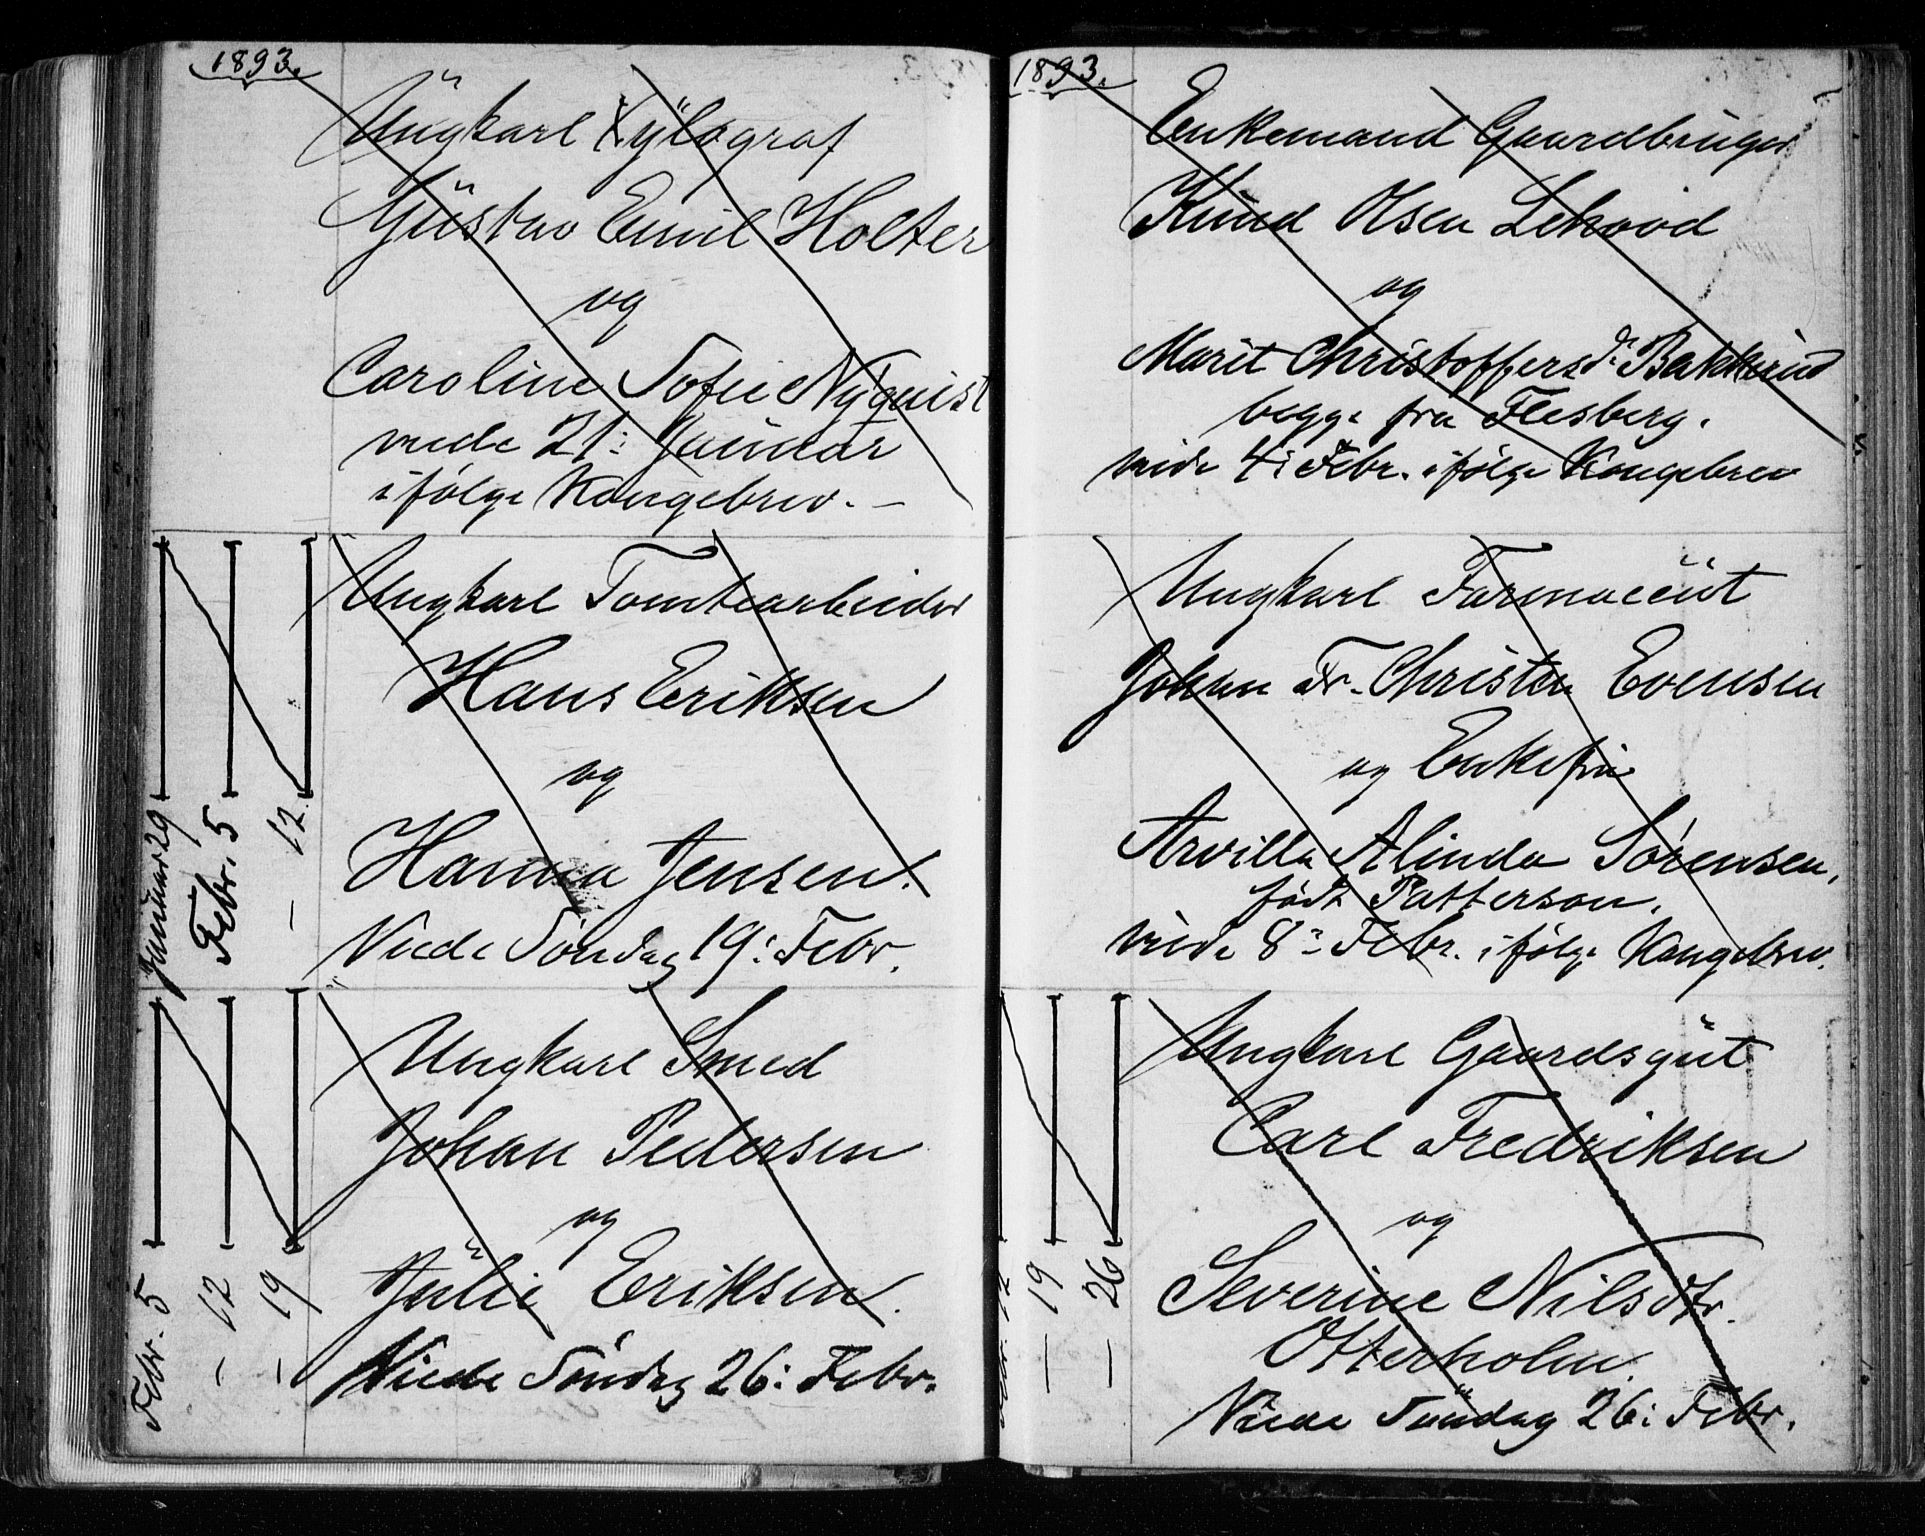 1893.
Ungkarl Xylograf
Gustav Emil Holter
og
Caroline Sofie Nyquist
viede 21: Januar
ifølge Kongebrev. —
Januar 29
Febr. 5
— 12
Ungkarl Tomtearbeider
Hans Eriksen
og
Hanna Jensen.
Viede Söndag 19: Febr.
Febr. 5
— 12
— 19
Ungkarl Smed
Johan Pedersen
og
Julie Eriksen.
Viede Söndag 26: Febr.
1893.
Enkemand Gaardbruger
Knud Olsen Lehovd
og
Marit Christoffersd: Bakkerud
begge fra Flesberg.
viede 4: Febr. ifølge Kongebrev
Ungkarl Farmaceut
Johan Fr. Christen Evensen
og Enkefru
Arvilla Alinda Sörensen,
født Patterson.
viede 8: Febr. ifølge Kongebrev.
Febr. 12
— 19
— 26
Ungkarl Gaardsgut
Carl Fredriksen
og
Severine Nilsdtr.
Otterholm.
Viede Söndag 26: Febr.